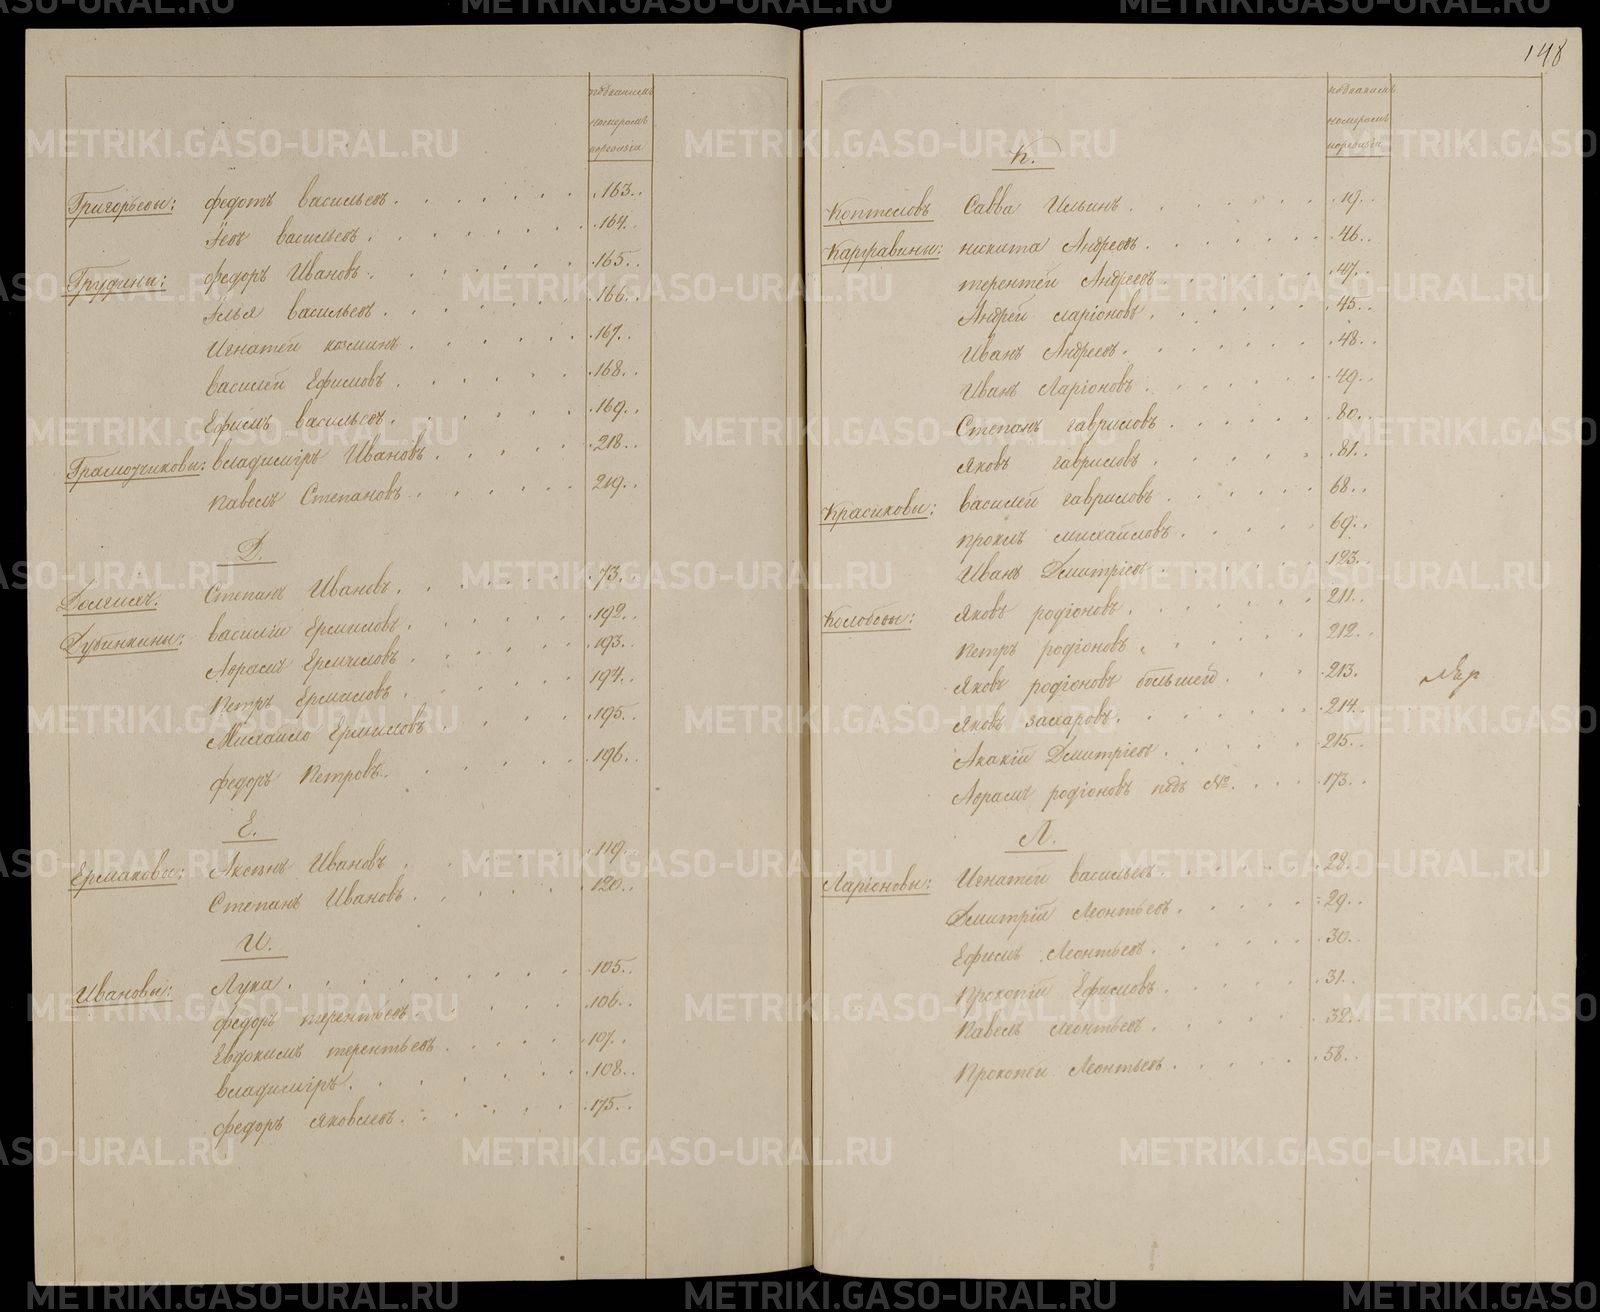 подкакимъ
номеромъ
поревизiи
Григорьевы: федотъ васильевъ 163.
васильевъ 164.
Грудины: федоръ Ивановъ 165.
Илья васильевъ 166.
Игнатей козминъ 167.
василей Ефимовъ 168.
Ефимъ васильевъ 169.
Грамотчиковы: владимiръ Ивановъ 218.
павелъ Степановъ 219.
Д.
Долгихъ. Степанъ Ивановъ 73.
Дубинкины: василiй Ермиловъ 192.
Абрамъ Ермиловъ 193.
Петръ Ермиловъ 194.
Михайло Ермиловъ 195.
федоръ Петровъ 196.
Е.
Ермаковы: Аксенъ Ивановъ 119.
Степанъ Ивановъ 120.
И.
Ивановы: Лука 105.
федоръ терентьевъ 106.
Евдокимъ терентьевъ 107.
владимiръ 108.
федоръ яковлевъ 175.
148
подкакимъ
номеромъ
поревизiи
К.
Коптеловъ Савва Ильинъ 19.
никита Андреевъ 46.
терентей Андреевъ 47.
Андрей ларiоновъ 45.
Иванъ Андреевъ 48.
Иванъ Ларiоновъ 49.
Степанъ гавриловъ 80.
яковъ гавриловъ 81.
Красиковы: василей гавриловъ 68.
прокпъ михайловъ 69.
Иванъ Дмитрiевъ 123.
Колобовы: яковъ родiоновъ 211.
петръ родiоновъ 212.
яковъ родiоновъ большей 213.
яковъ захаровъ 214.
Акакiй Дмитрiевъ 215.
Абрамъ родiоновъ подъ № 173.
Л.
Ларiоновы: Игнатей васильевъ 28.
Дмитрiй Леонтьевъ 29.
Ефимъ Леонтьевъ 30.
Прокопiй Ефимовъ 31.
павелъ леонтьевъ 32.
Прокопей Леонтьевъ 58.
METRIKI.GASO-URAL.RU